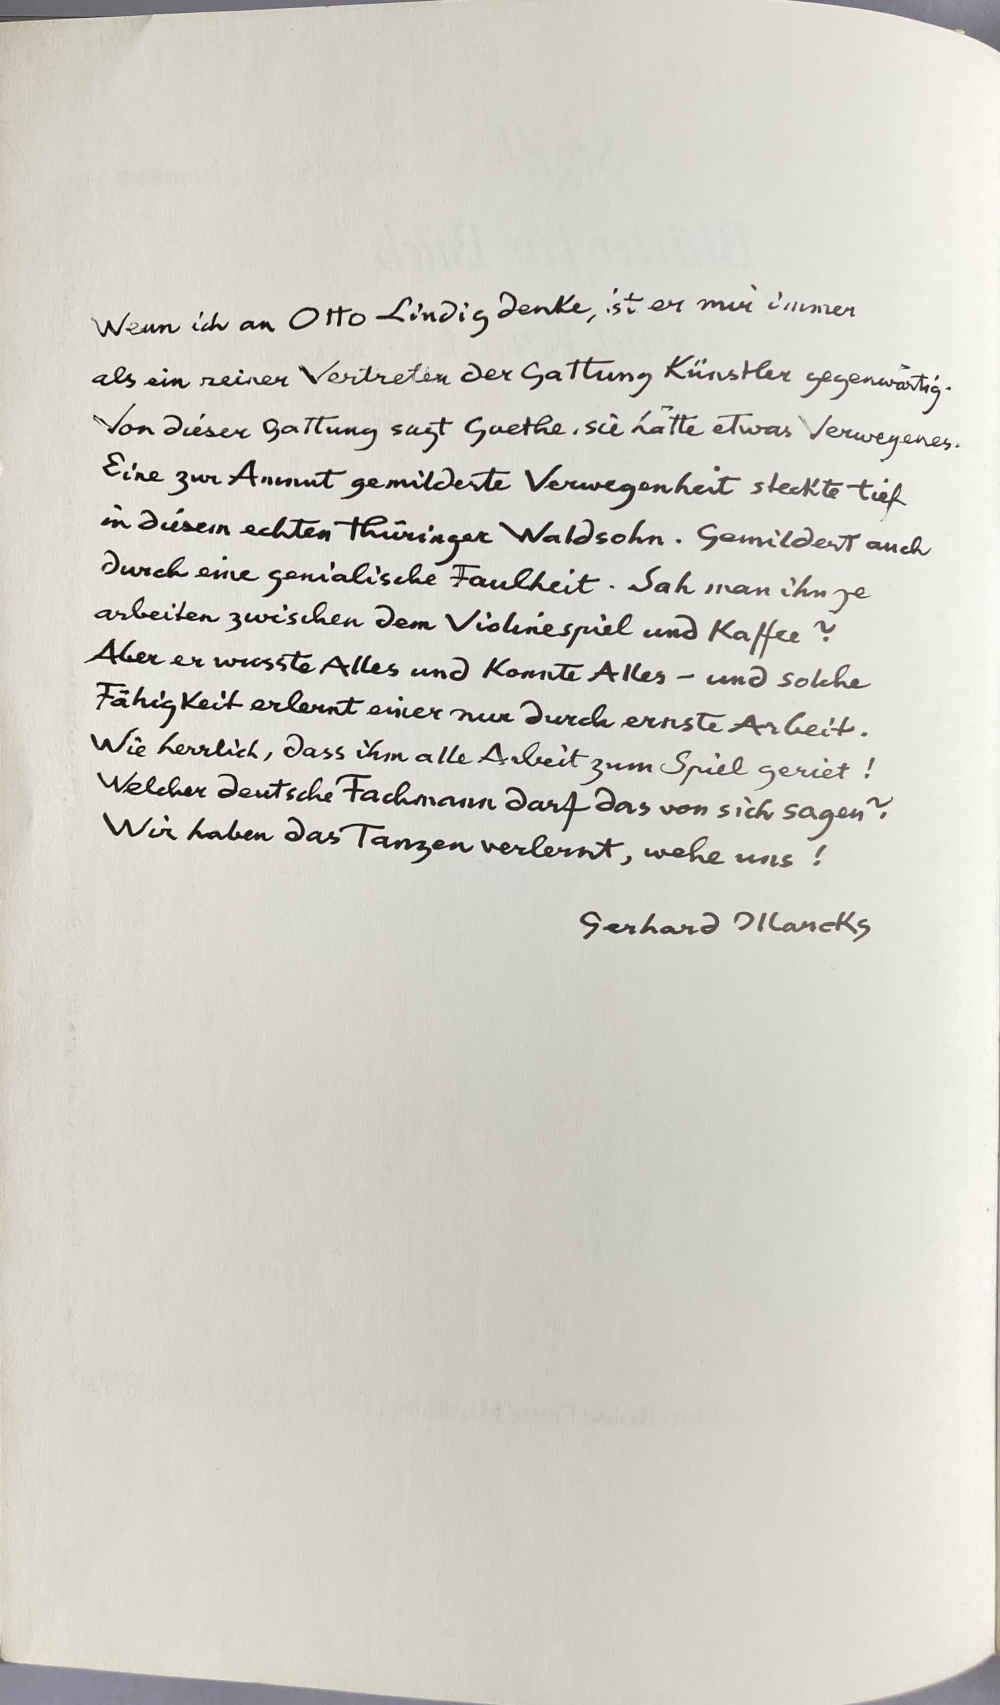 Wenn ich an Otto Lindig denke, ist er mir immer
als ein reiner Vertreter der Gattung Künstler gegenwärtig.
Von dieser Gattung sagt Goethe, sie hätte etwas Verwegenes.
Eine zur Anmut gemilderte Verwegenheit steckte tief
in diesem echten Thüringer Waldsohn. Gemildert auch
durch eine genialische Faulheit. Sah man ihn je
arbeiten zwischen dem Violinespiel und Kaffee?
Aber er wusste Alles und konnte Alles – und solche
Fähigkeit erlernt einer nur durch ernste Arbeit.
Wie herrlich, dass ihm alle Arbeit zum Spiel geriet!
Welcher deutsche Fachmann darf das von sich sagen?
Wir haben das Tanzen verlernt, wehe uns!
Gerhard Marcks